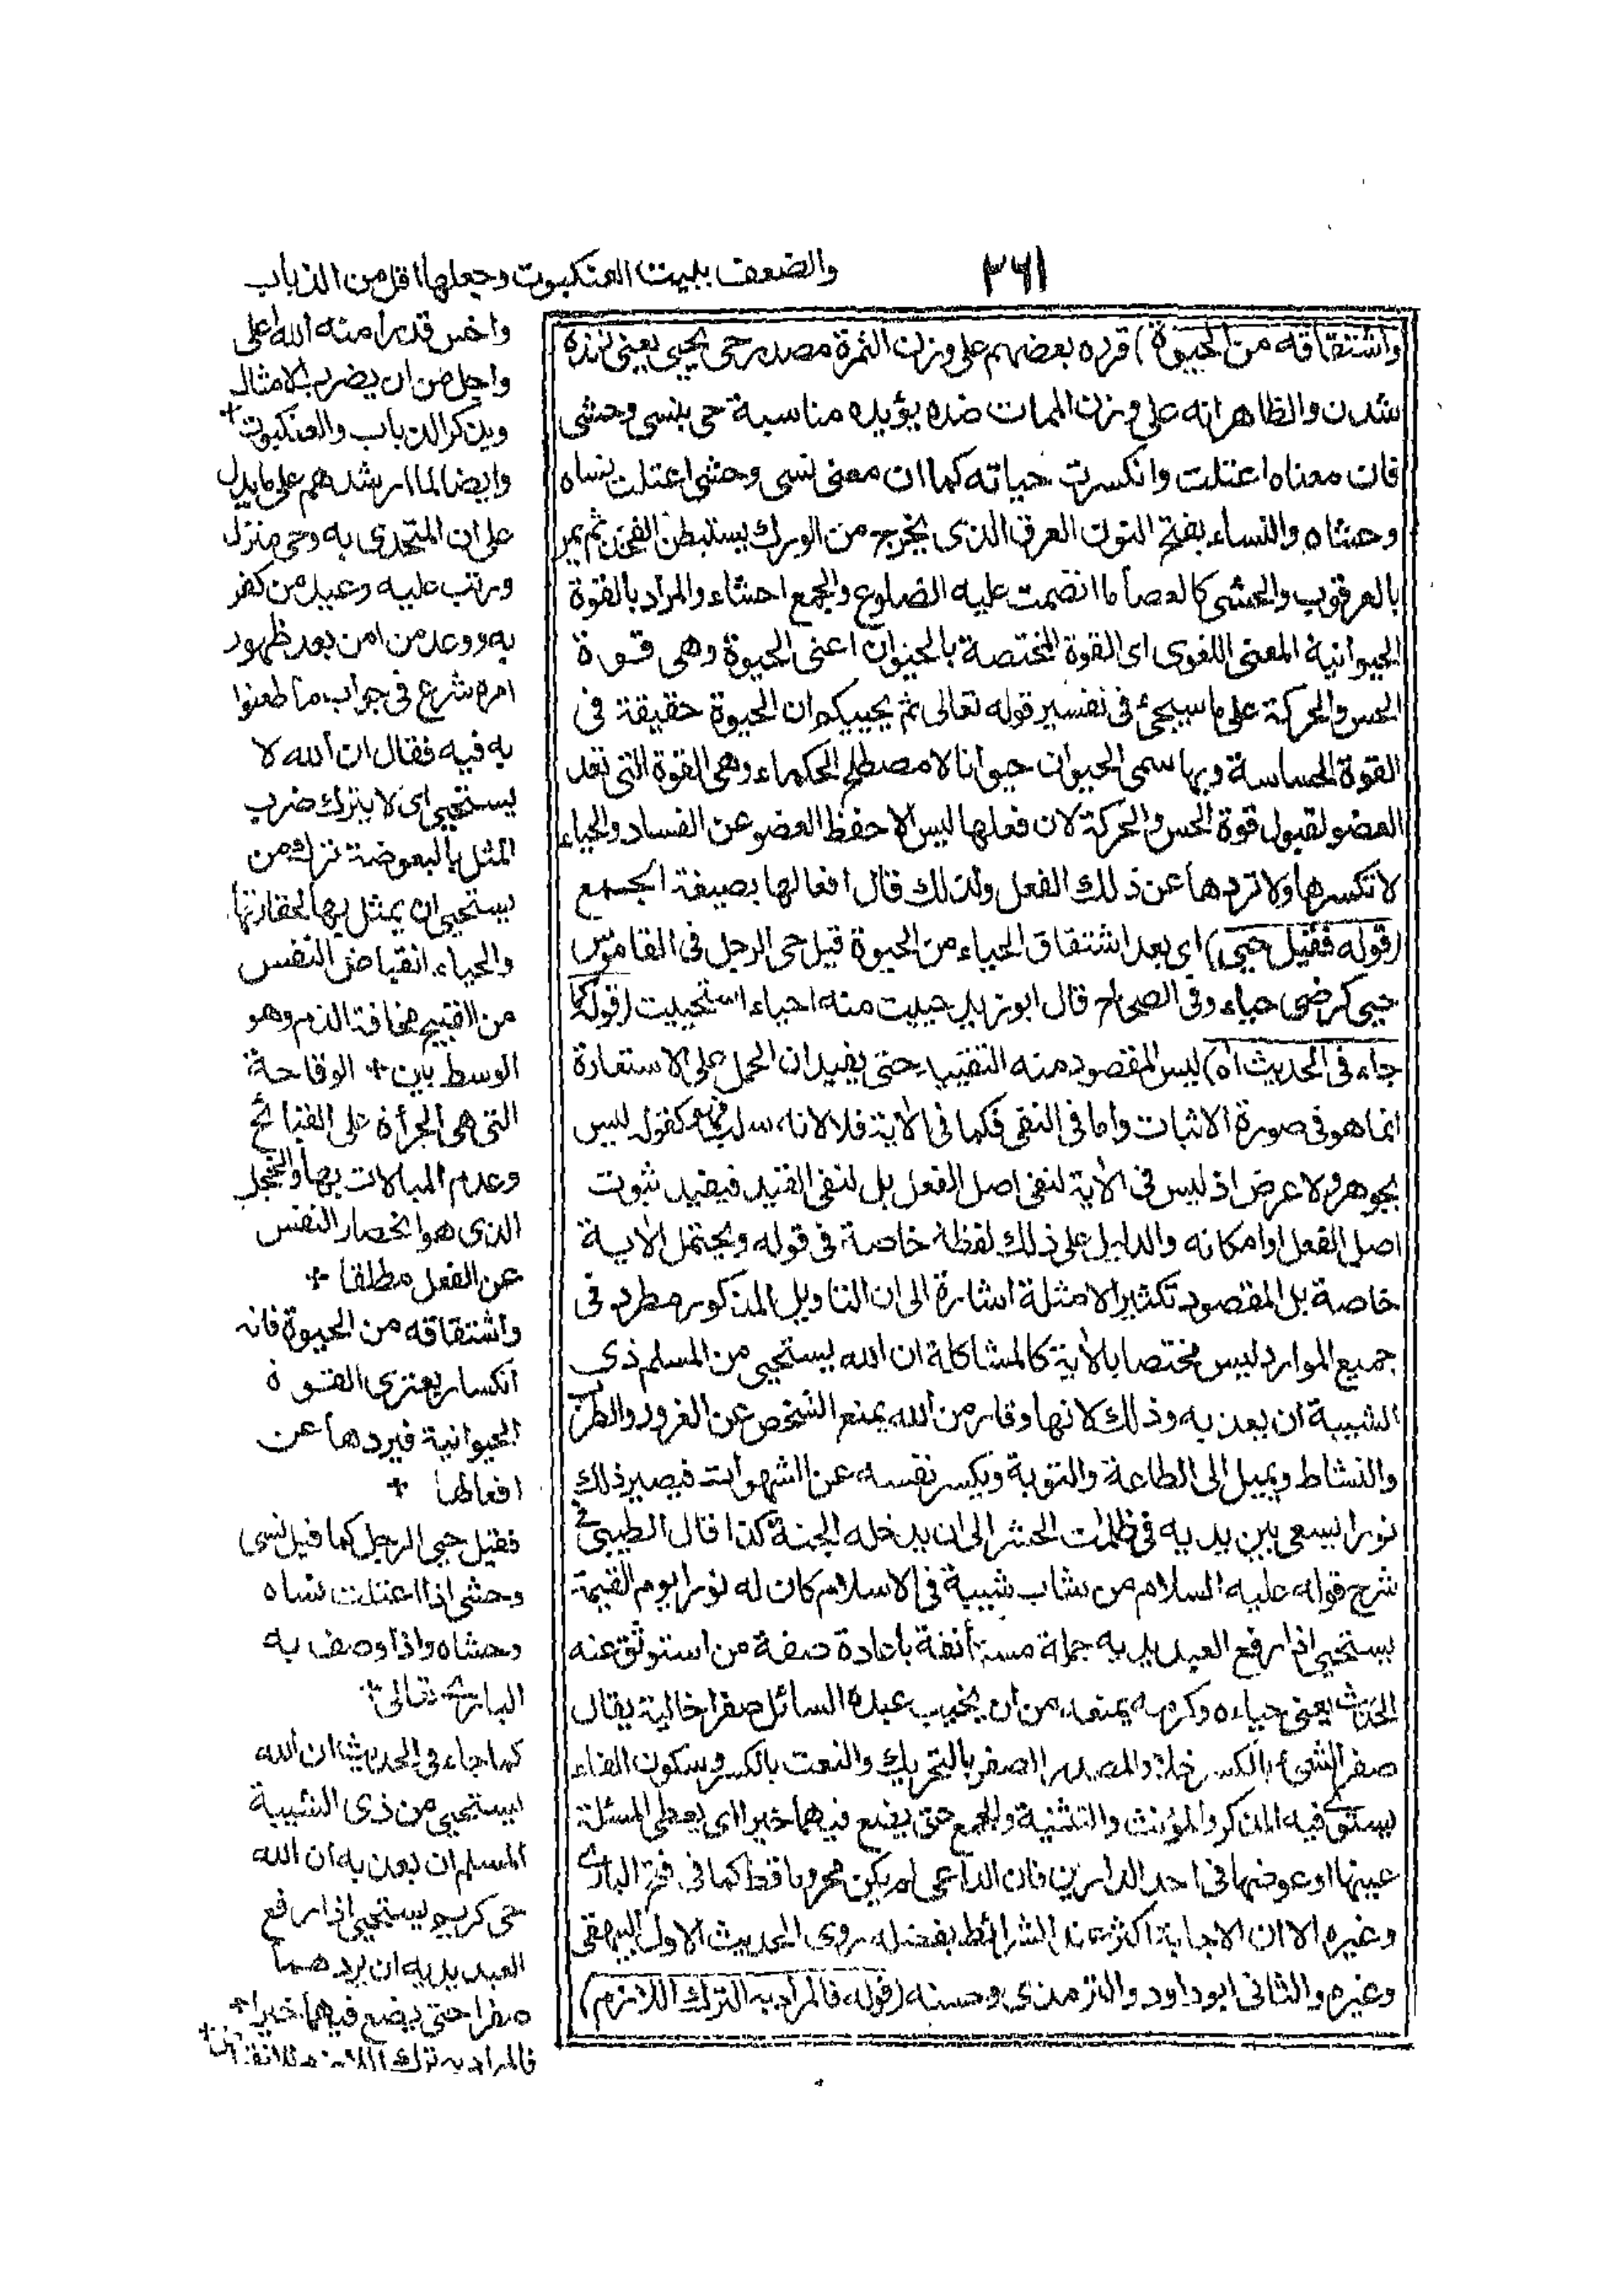 ٣٦١
والضعف ببيت العنكبوت وجعلها اقل من الذباب
واشتقاقه من الحيوة) قرره بعضهم على وزن الثمرة مصدر حى يحيى يعنى زنده
شدن والظاهر انه على وزن الممات ضده يؤيده مناسبة حى بنسى وحشى
فان معناه اعتلت وانكسرت حياته كما ان معنى نسى وحشى اعتلت نساه
وحشاه والنساء بفتح النون العرق الذى يخرج من الورك يستبطن الفخذ ثم يمر
بالعرقوب والحشى كالعصا ما انضمت عليه الضلوع والجمع احشاء والمراد بالقوة
الحيوانية المعنى اللغوى اى القوة المختصة بالحيوان اعنى الحيوة وهى قوة
الحس والحركة على ما سيجئ فى تفسير قوله تعالى ثم يحييكم ان الحيوة حقيقة فى
القوة الحساسة وبها سمى الحيوان حيوانا لا مصطلح الحكماء وهى القوة التى تعد
العضو لقبول قوة الحس والحركة لان فعلها ليس الا حفظ العضو عن الفساد والحياء
لا تكسرها ولا تردها عن ذلك الفعل ولذلك قال افعالها بصيغة الجمع
(قوله فقيل حيى) اى بعد اشتقاق الحياء من الحيوة قيل حى الرجل فى القاموس
حيى كرضى حياء وفى الصحاح قال ابو زيد حييت منه احياء استحييت (قوله كما
جاء فى الحديث اه) ليس المقصود منه التقييد حتى يفيد ان الحمل على الاستعارة
انما هو فى صورة الاثبات واما فى النفى فكما فى الاية فلا لانه سلب كقوله ليس
بجوهر ولا عرض اذ ليس فى الآية لنفى اصل الفعل بل لنفى القيد فيفيد ثبوت
اصل الفعل او امكانه والدليل على ذلك لفظة خاصة فى قوله ويحتمل الآية
خاصة بل المقصود تكثير الامثلة اشارة الى ان التاويل المذكور مطرد فى
جميع الموارد ليس مختصا بالآية كالمشاكلة ان الله يستحيى من المسلم ذى
الشيبة ان يعذبه وذلك لانها وقار من الله يمنع الشخص عن الغرور والطرب
والنشاط ويميل الى الطاعة والتوبة ويكسر نفسه عن الشهوات فيصير ذلك
نورا يسعى بين يديه فى ظلمات الحشر الى ان يدخله الجنة كذا قال الطيبى فى
شرح قوله عليه السلام من شاب شيبة فى الاسلام كان له نورا يوم القيمة
يستحيى اذا رفع العبد يديه جملة مستأنفة باعادة صفة من استوثق عنه
الحديث يعنى حياءه وكرمه يمنعه من ان يخيب عبده السائل صفرا خالية يقال
صفر الشئ بالكسر خلا والمصدر الصفر بالتحريك والنعت بالكسر وسكون الفاء
يستوى فيه المذكر والمؤنث والتثنية والجمع حتى يضع فيهما خيرا اى يعطى المسئلة
عينها او عوضها فى احد الدارين فان الداعى لم يكن محروما قط كما فى فتح البارى
وغيره الا ان الاجابة اكثر عند الشرائط بفضله روى الحديث الاول البيهقى
وغيره والثانى ابو داود والترمذى وحسنه (قوله فالمراد به الترك اللازم)
واخس قدرا منه الله اعلى
واجل من ان يضرب الامثال
ويذكر الذباب والعنكبوت +
وايضا لما ارشدهم على ما يدل
على ان المتحدى به وحى منزل
ورتب عليه وعيد من كفر
به ووعد من امن بعد ظهور
امره شرع فى جواب ما طعنوا
به فيه فقال ان الله لا
يستحيى اى لا يترك ضرب
المثل بالبعوضة ترك من
يستحيى ان يمثل بها لحقارتها
والحياء انقباض النفس
من القبيح مخافة الذم وهو
الوسط بين + الوقاحة
التى هى الجرأة على القبائح
وعدم المبالات بها والخجل
الذى هو انحصار النفس
عن الفعل مطلقا +
واشتقاقه من الحيوة فانه
انكسار يعترى القوة
الحيوانية فيردها عن
افعالها +
فقيل حيى الرجل كما قيل نسى
وحشى اذا اعتلت نساه
وحشاه واذا وصف به
البارى تعالى +
كما جاء فى الحديث ان الله
يستحيى من ذى الشيبة
المسلم ان يعذبه ان الله
حى كريم يستحيى اذا رفع
العبد يديه ان يردهما
صفرا حتى يضع فيهما خيرا +
فالمراد به ترك